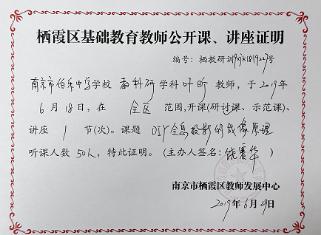 栖霞区基础教育教师公开课、讲座证明
编号：栖教研训
南京市伯乐中学学校 教科研 学科 叶昕 教师，于2019年
6月18日，在 全区 范围，开课(研讨课、示范课)、
讲座 1 节(次)。课题 DIY全息投影的成像原理
听课人数 50人，特此证明。(主办人签名: )
南京市栖霞区教师发展中心
2019年6月 日